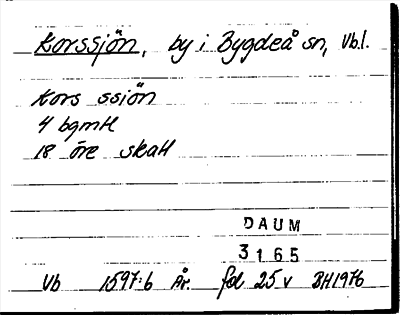 Korssjön, by i Bygdeå sn, Vb.l.
Kors ssiön
4 bgmtl
18 öre skatt
DAUM
3165
Vb 1597:6 År. fol 25 v BH1976